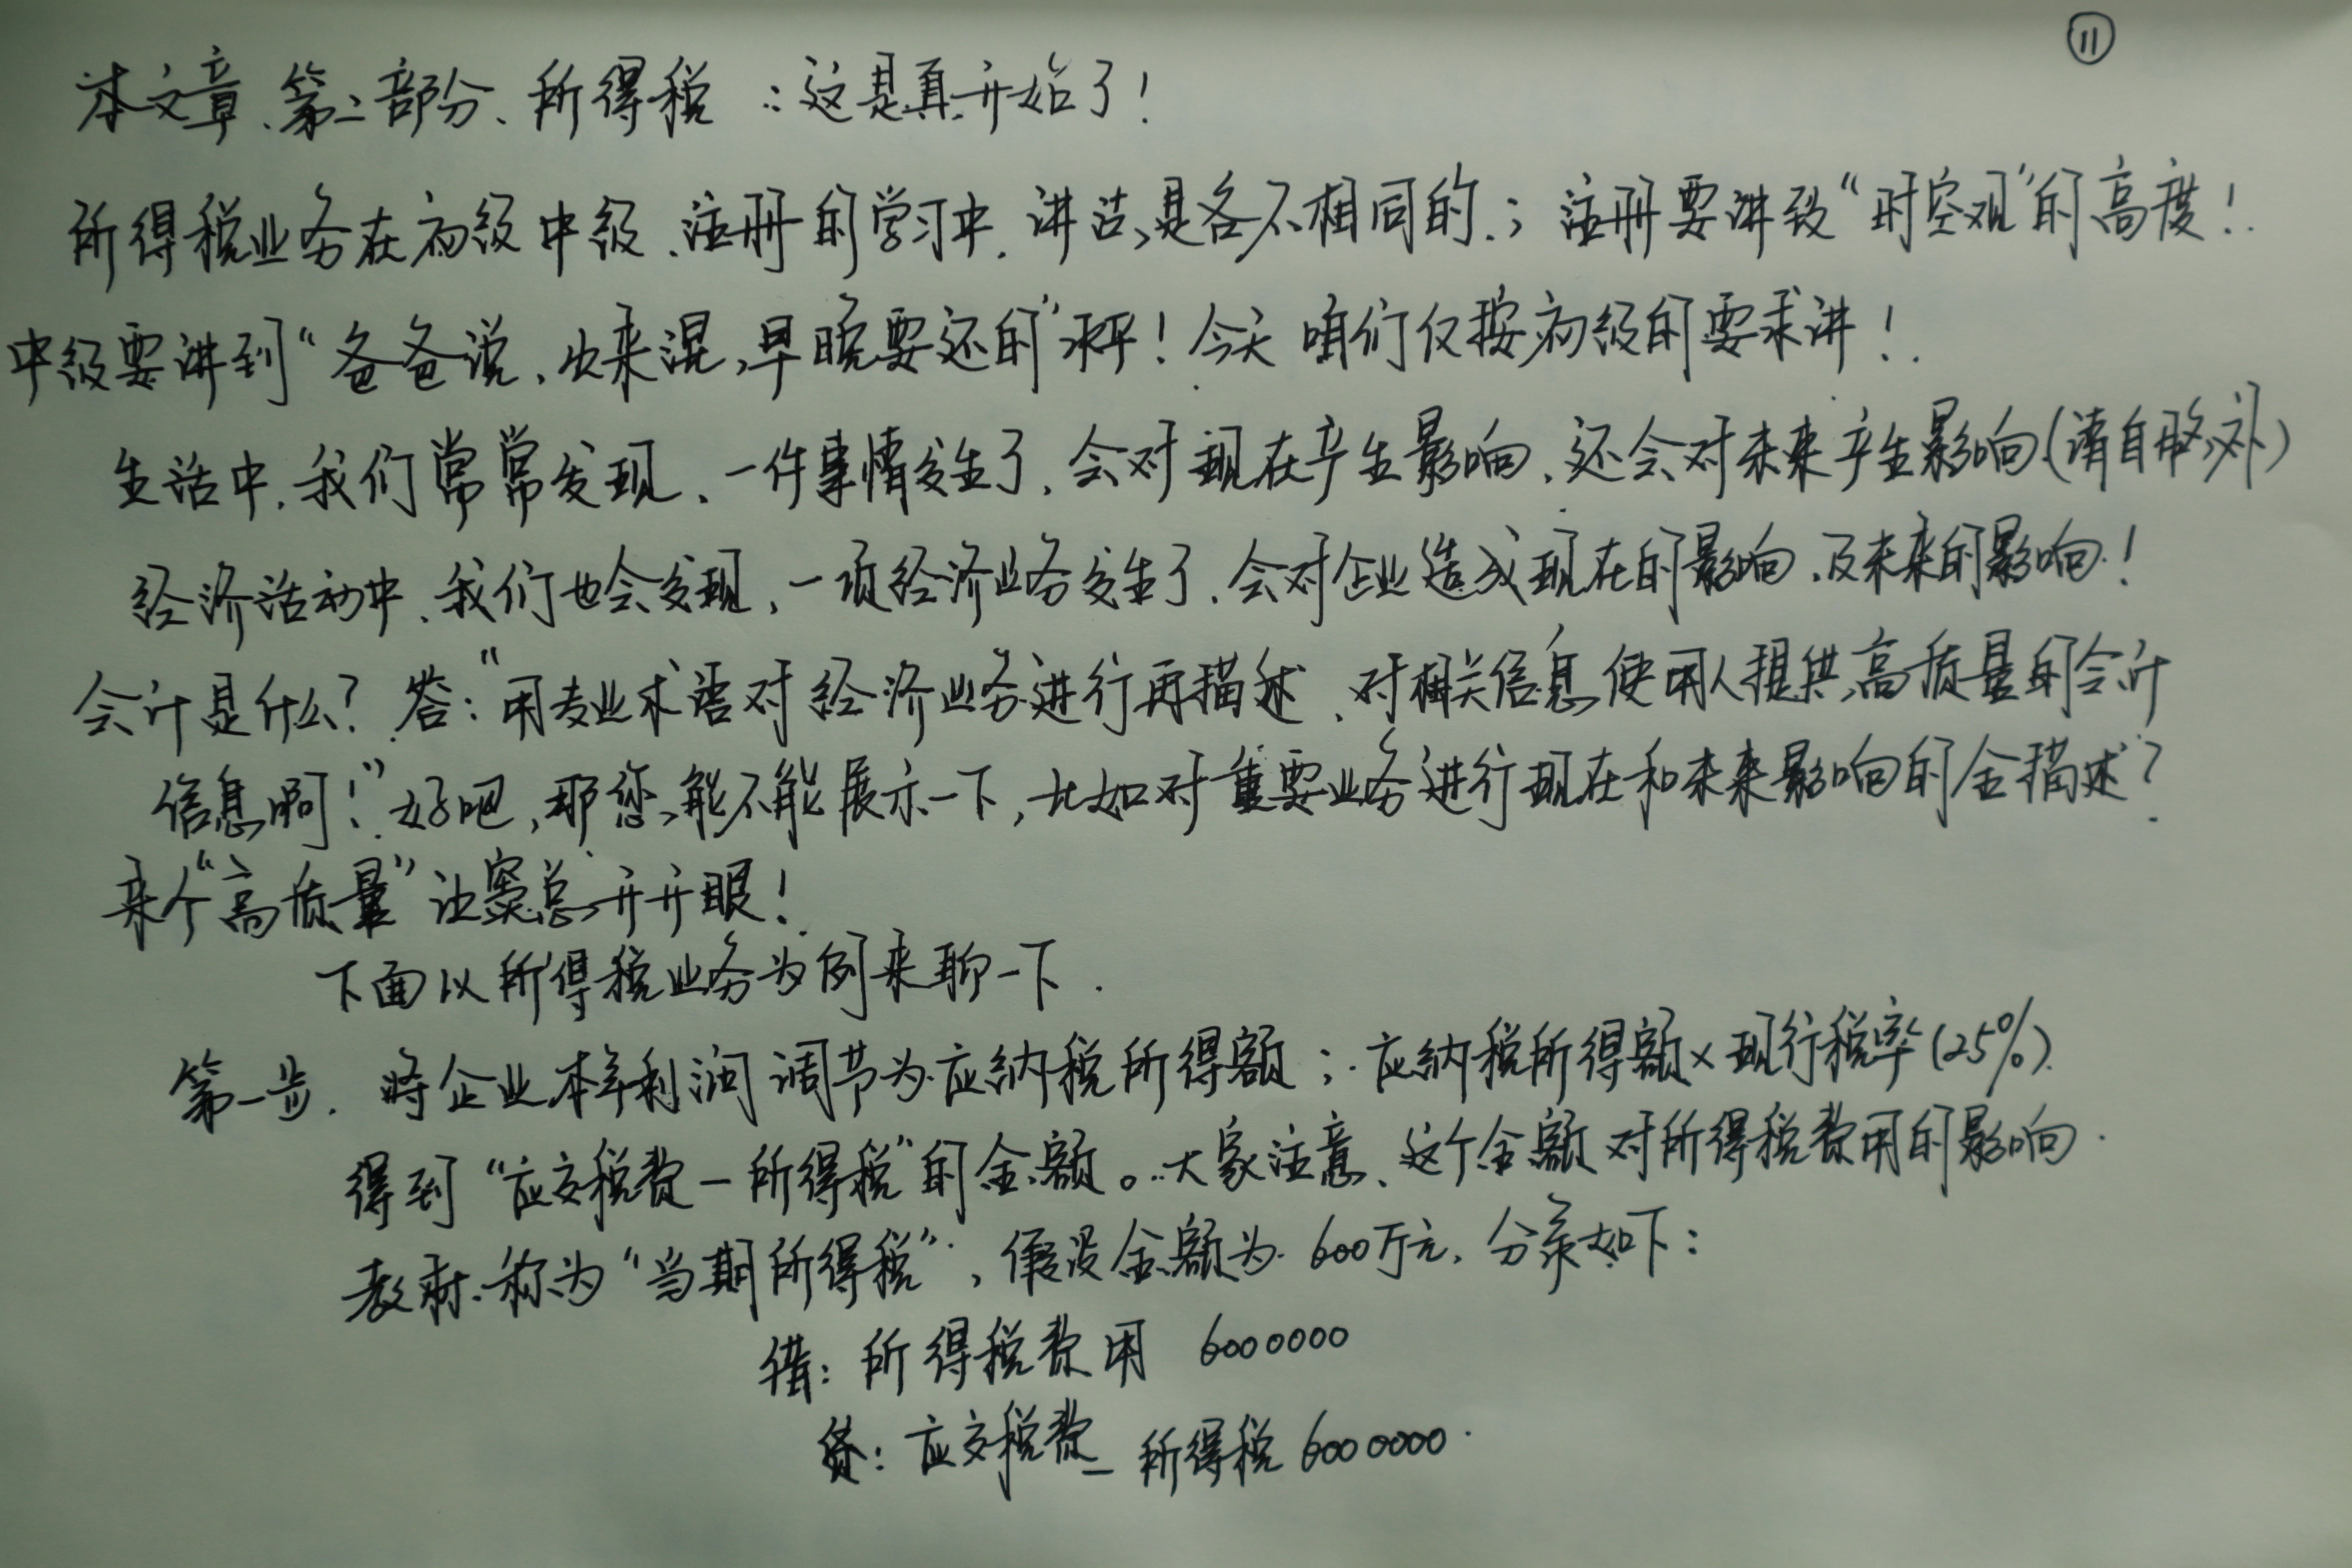 ⑪
本文章、第二部分、所得税：这是真开始了！
所得税业务在初级中级、注册的学习中，讲法是各不相同的；注册要讲致“时空观”的高度！
中级要讲到“爸爸说，出来混，早晚要还的”水平！今天咱们仅按初级的要求讲！
生活中，我们常常发现，一件事情发生了，会对现在产生影响，还会对未来产生影响（请自脑补）
经济活动中，我们也会发现，一项经济业务发生了，会对企业造成现在的影响，及未来的影响！
会计是什么？答：“用专业术语对经济业务进行再描述，对相关信息使用人提供高质量的会计
信息啊！”好吧，那您能不能展示一下，比如对重要业务进行现在和未来影响的全描述？
来个“高质量”让窦总开开眼！
下面以所得税业务为例来聊一下．
第一步．将企业本年利润调节为应纳税所得额；应纳税所得额×现行税率(25%)
得到“应交税费－所得税”的金额。大家注意、这个金额对所得税费用的影响
教材称为“当期所得税”，假设金额为600万元，分录如下：
借：所得税费用 6000000
贷：应交税费－所得税 6000000